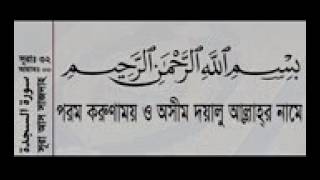 بسم الله الرحمن الرحيم
পরম করুণাময় ও অসীম দয়ালু আল্লাহ্‌র নামে
সূরাঃ ৩২
سورة السجدة
সূরা আস সাজদাহ